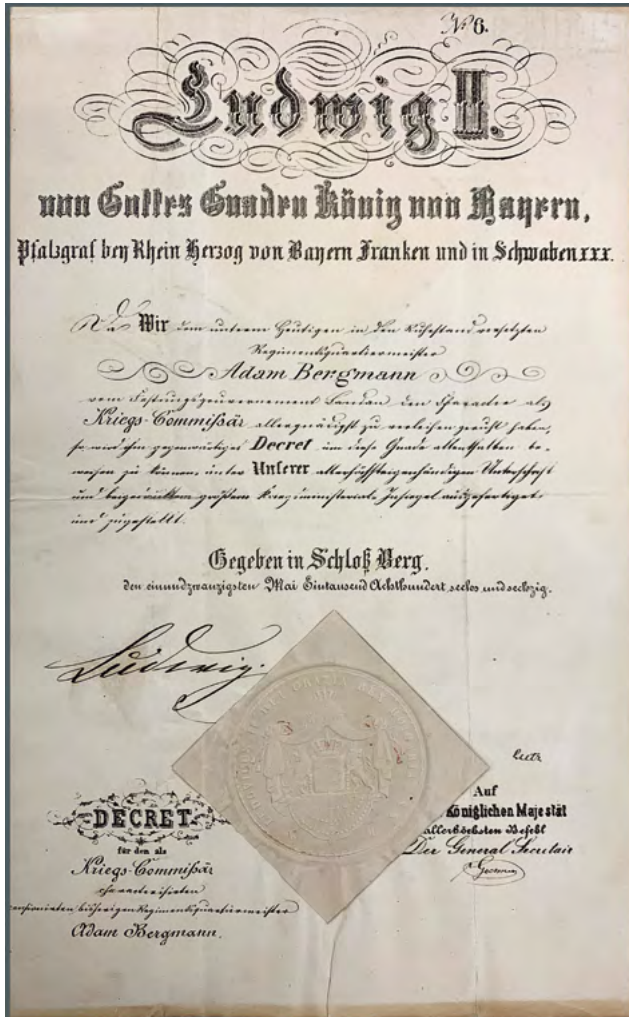 No 6.
Ludwig II.
von Gottes Gnaden König von Bayern,
Pfalzgraf bey Rhein Herzog von Bayern Franken und in Schwaben xxx.
Da Wir dem unterm Heutigen in den Ruhestand versetzten
Regimentsquartiermeister
Adam Bergmann
vom Festungsgouvernement Landau den Character als
Kriegs-Commißär allergnädigst zu verleihen geruht haben,
so wird ihm gegenwärtiges Decret um diese Gnade allenthalben be-
weisen zu können, unter Unserer allerhöchsteigenhändigen Unterschrift
und beigedrücktem großem Kriegsministerial-Insiegel ausgefertiget
und zugestellt.
Gegeben in Schloß Berg.
den einundzwanzigsten Mai Eintausend Achthundert sechs und sechzig.
Ludwig.
Lutz
DECRET
für den als
Kriegs-Commißär
characterisirten
pensionirten bisherigen Regimentsquartiermeister
Adam Bergmann.
Auf
Königlichen Majestät
allerhöchsten Befehl
Der General Secretair